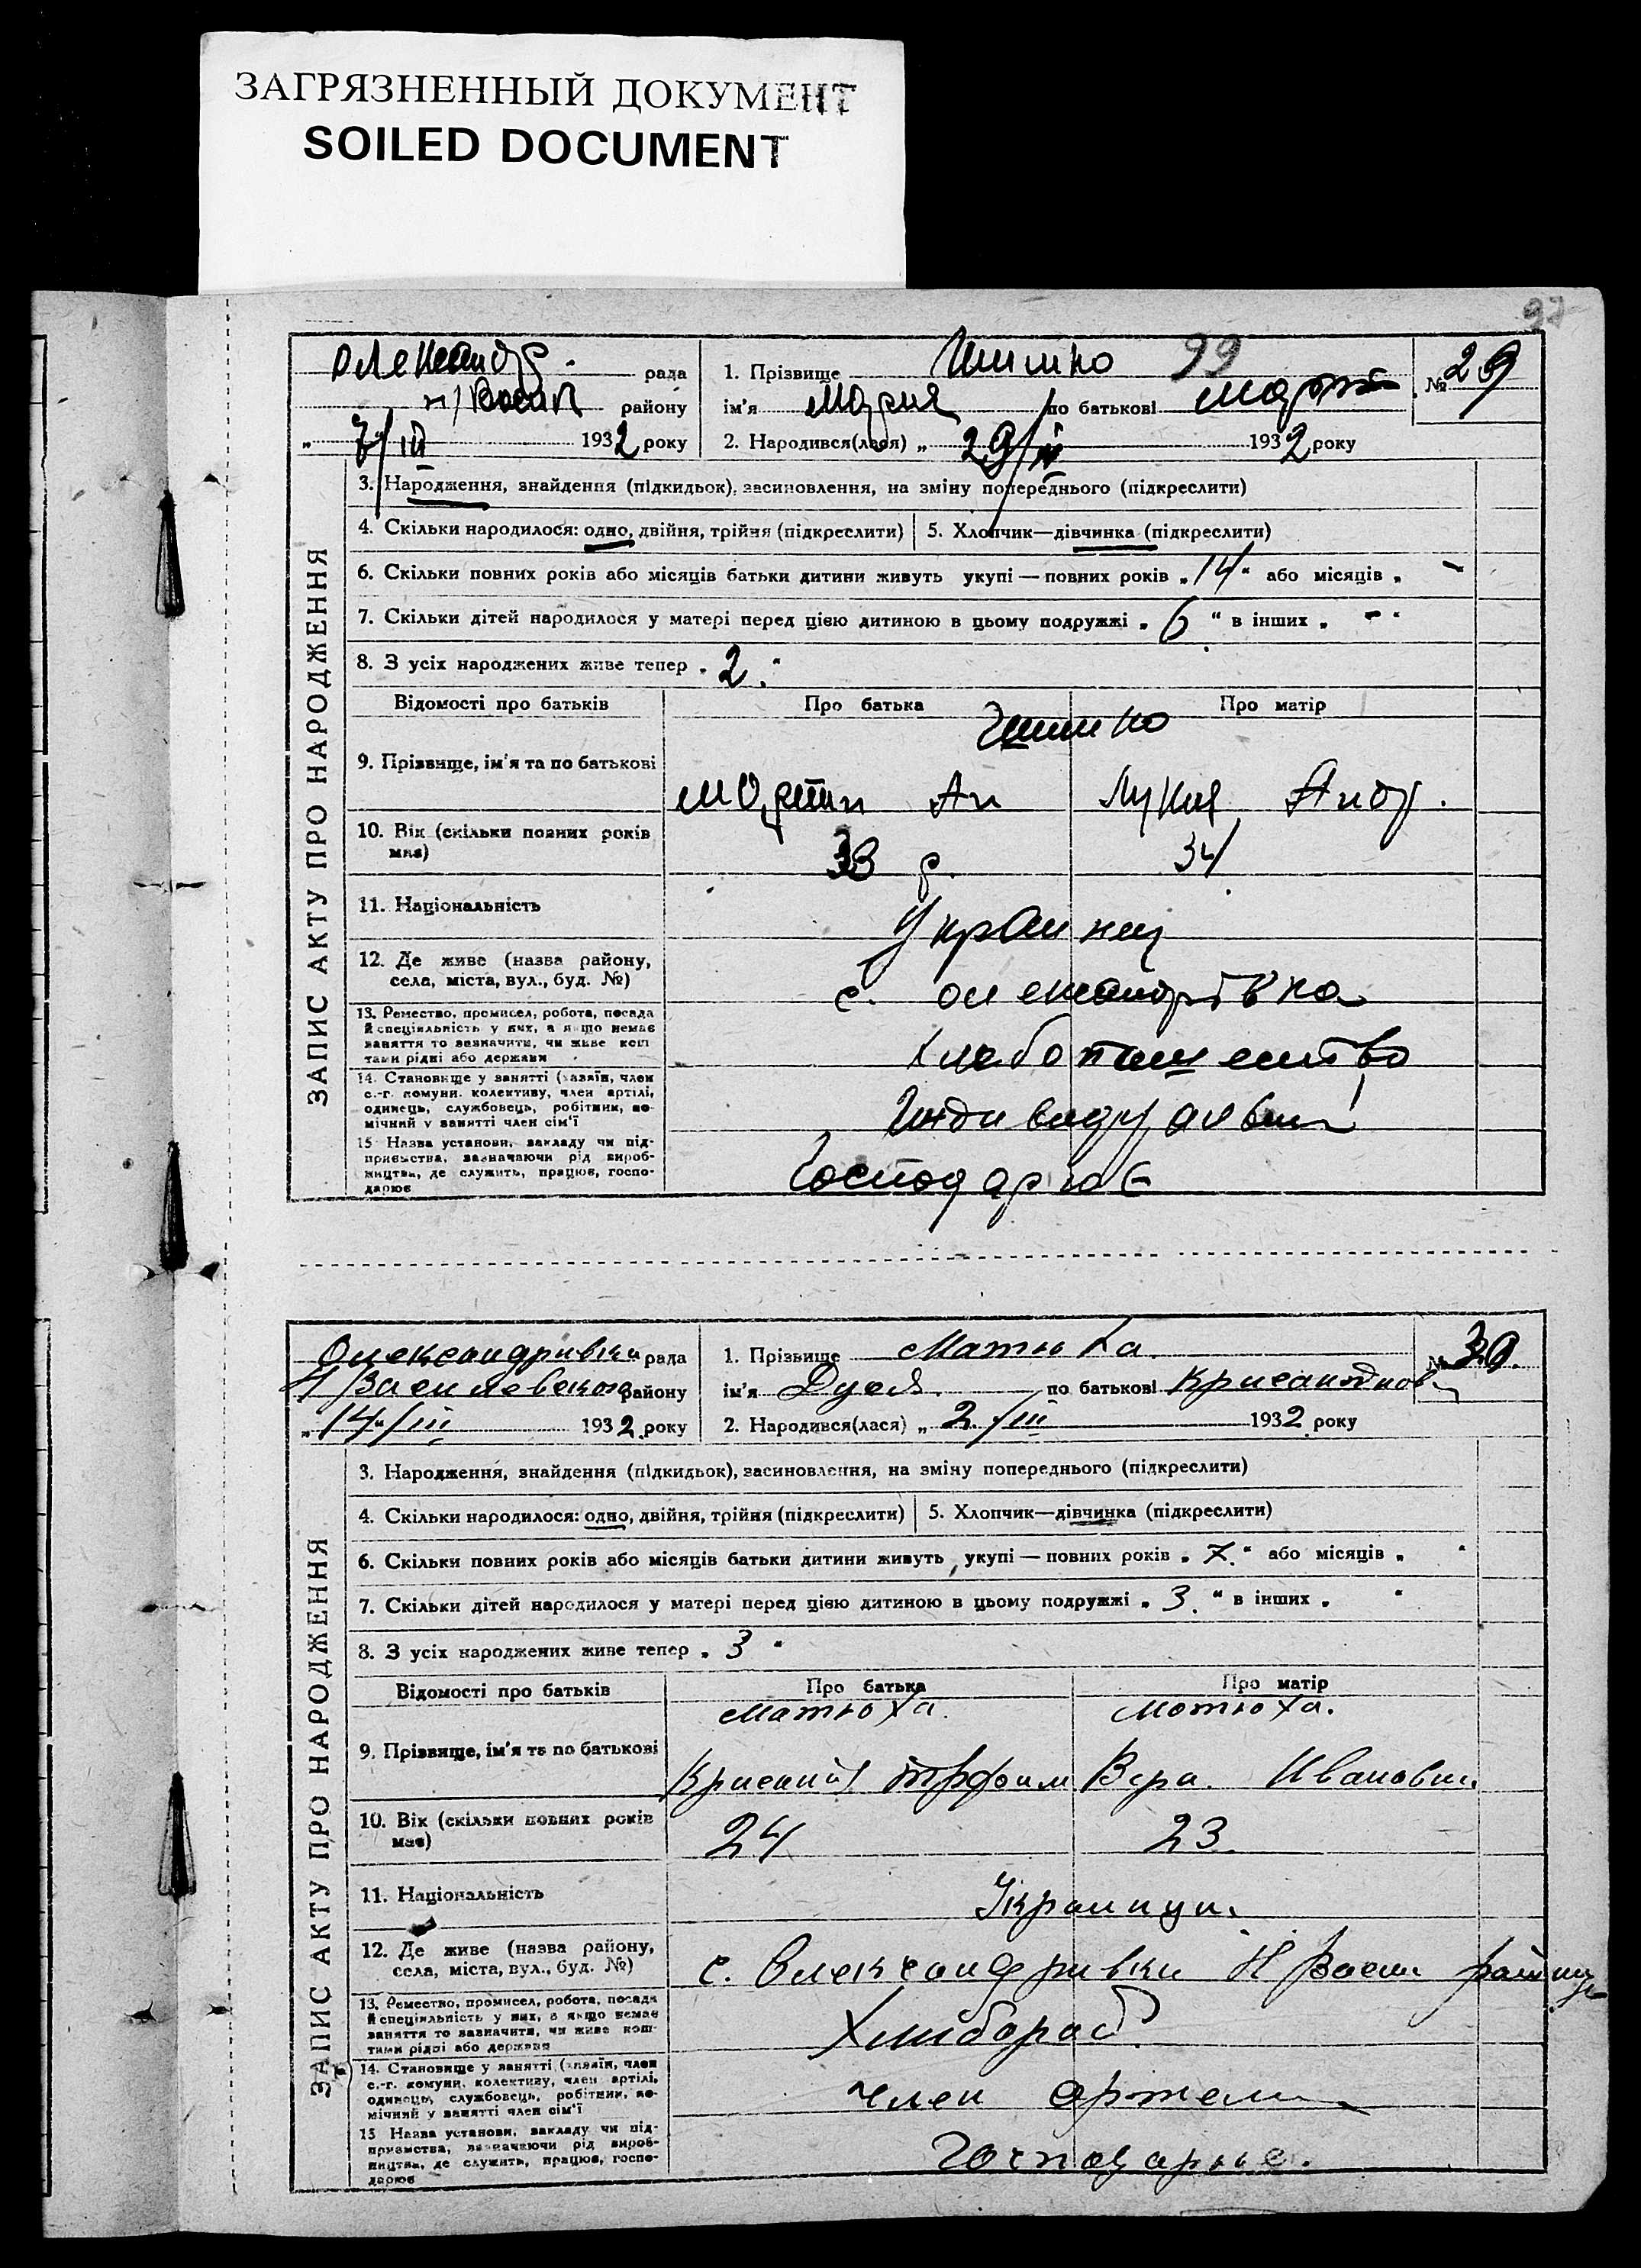 ЗАГРЯЗНЕННЫЙ ДОКУМЕНТ
SOILED DOCUMENT
97
Олександр. рада
н/Васил району
„ 7/III 1932 року
1. Прізвище 99
ім'я Мария по батькові Март
2. Народився(лася) „ 29/II 1932 року
№ 29
ЗАПИС АКТУ ПРО НАРОДЖЕННЯ
3. Народження, знайдення (підкидьок), засиновлення, на зміну попереднього (підкреслити)
4. Скільки народилося: одно, двійня, трійня (підкреслити) 5. Хлопчик—дівчинка (підкреслити)
6. Скільки повних років або місяців батьки дитини живуть укупі—повних років „ 14 “ або місяців „ -
7. Скільки дітей народилося у матері перед цією дитиною в цьому подружжі „ 6 “ в інших „ - “
8. З усіх народжених живе тепер „ 2 “
Відомості про батьків Про батька Про матір
9. Прізвище, ім'я та по батькові
Мартин Ан Лукия Анд.
10. Вік (скільки повних років має) 33 р. 34
11. Національність Украинці
12. Де живе (назва району, села, міста, вул., буд. №) с. Олександрівка
13. Ремество, промисел, робота, посада
й спеціяльність у них, а якщо немає
заняття то зазначити, чи живе кош-
тами рідні або держави
14. Становище у занятті (хазяїн, член
с.-г. комуни, колективу, член артілі,
одинець, службовець, робітник, по-
мічний у занятті член сім'ї
15 Назва установи, закладу чи під-
приємства, зазначаючи рід вироб-
ництва, де служить, працює, госпо-
дарює
Господарює
Олександривки рада
Н Василевського району
„ 14/III 1932 року
1. Прізвище Матюха
ім'я Дуся по батькові
2. Народився(лася) „ 2/III 1932 року
№ 30.
ЗАПИС АКТУ ПРО НАРОДЖЕННЯ
3. Народження, знайдення (підкидьок), засиновлення, на зміну попереднього (підкреслити)
4. Скільки народилося: одно, двійня, трійня (підкреслити) 5. Хлопчик—дівчинка (підкреслити)
6. Скільки повних років або місяців батьки дитини живуть укупі—повних років „ 7. “ або місяців „ “
7. Скільки дітей народилося у матері перед цією дитиною в цьому подружжі „ 3. “ в інших „ “
8. З усіх народжених живе тепер „ 3 “
Відомості про батьків Про батька Про матір
Матюха. Матюха.
9. Прізвище, ім'я та по батькові Вера. Ивановн.
10. Вік (скільки повних років має) 24 23.
11. Національність Украинци.
12. Де живе (назва району, села, міста, вул., буд. №) с. Олександривки Н Васил району
13. Ремество, промисел, робота, посада
й спеціяльність у них, а якщо немає
заняття то зазначити, чи живе кош-
тами рідні або держави
Хлибороб.
14. Становище у занятті (хазяїн, член
с.-г. комуни, колективу, член артілі,
одинець, службовець, робітник, по-
мічний у занятті член сім'ї
член артели
15 Назва установи, закладу чи під-
приємства, зазначаючи рід вироб-
ництва, де служить, працює, госпо-
дарює
Господарює.